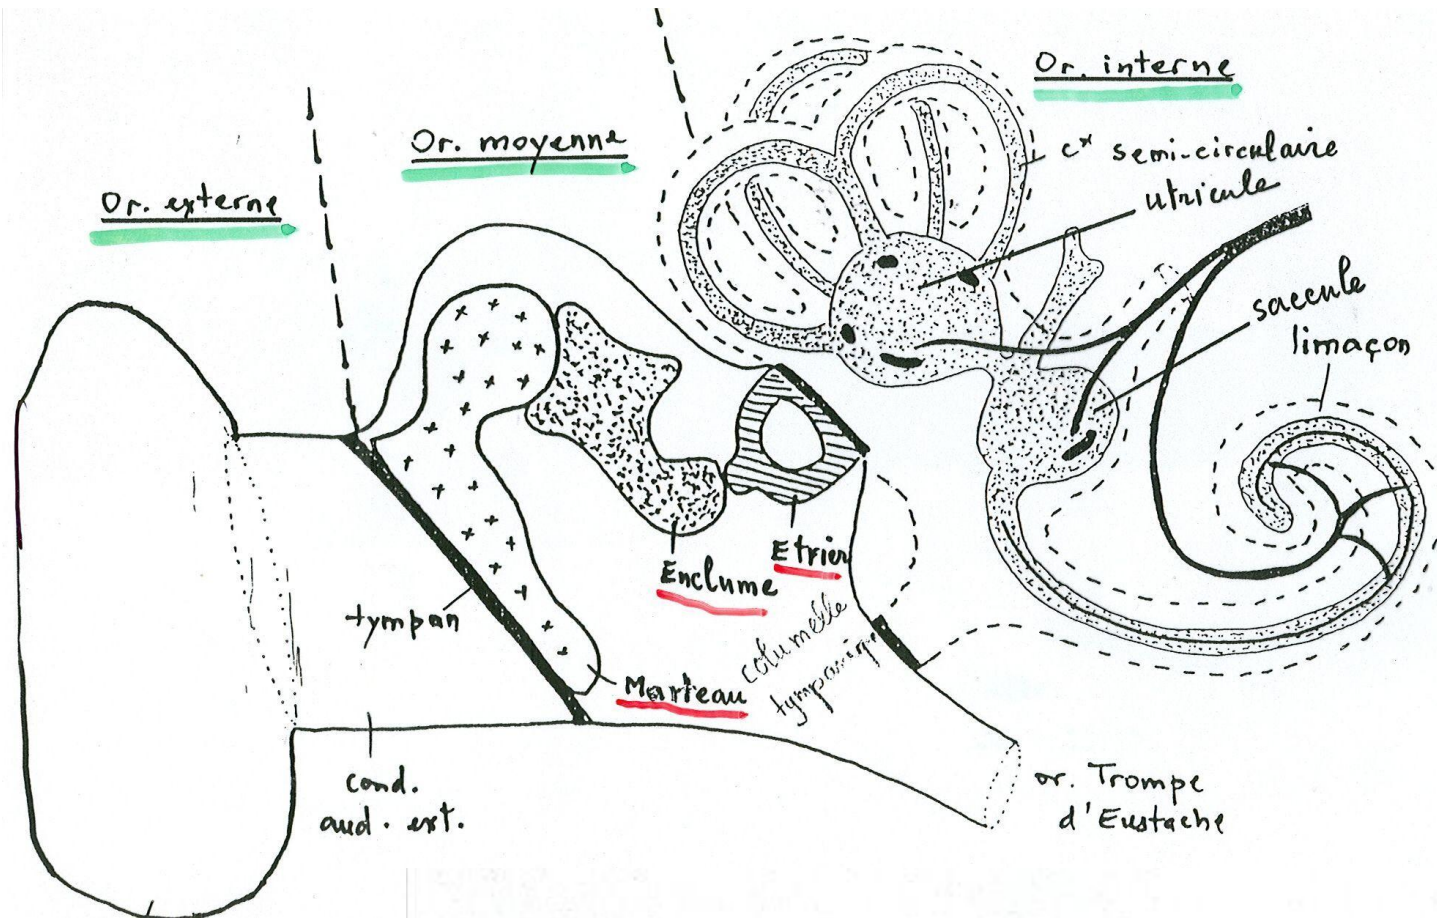 Or. externe
Or. moyenne
Or. interne
cx semi-circulaire
utricule
saccule
limaçon
Etrier
Enclume
tympan
Marteau
columelle
tympanique
cond.
aud. ext.
or. Trompe
d'Eustache